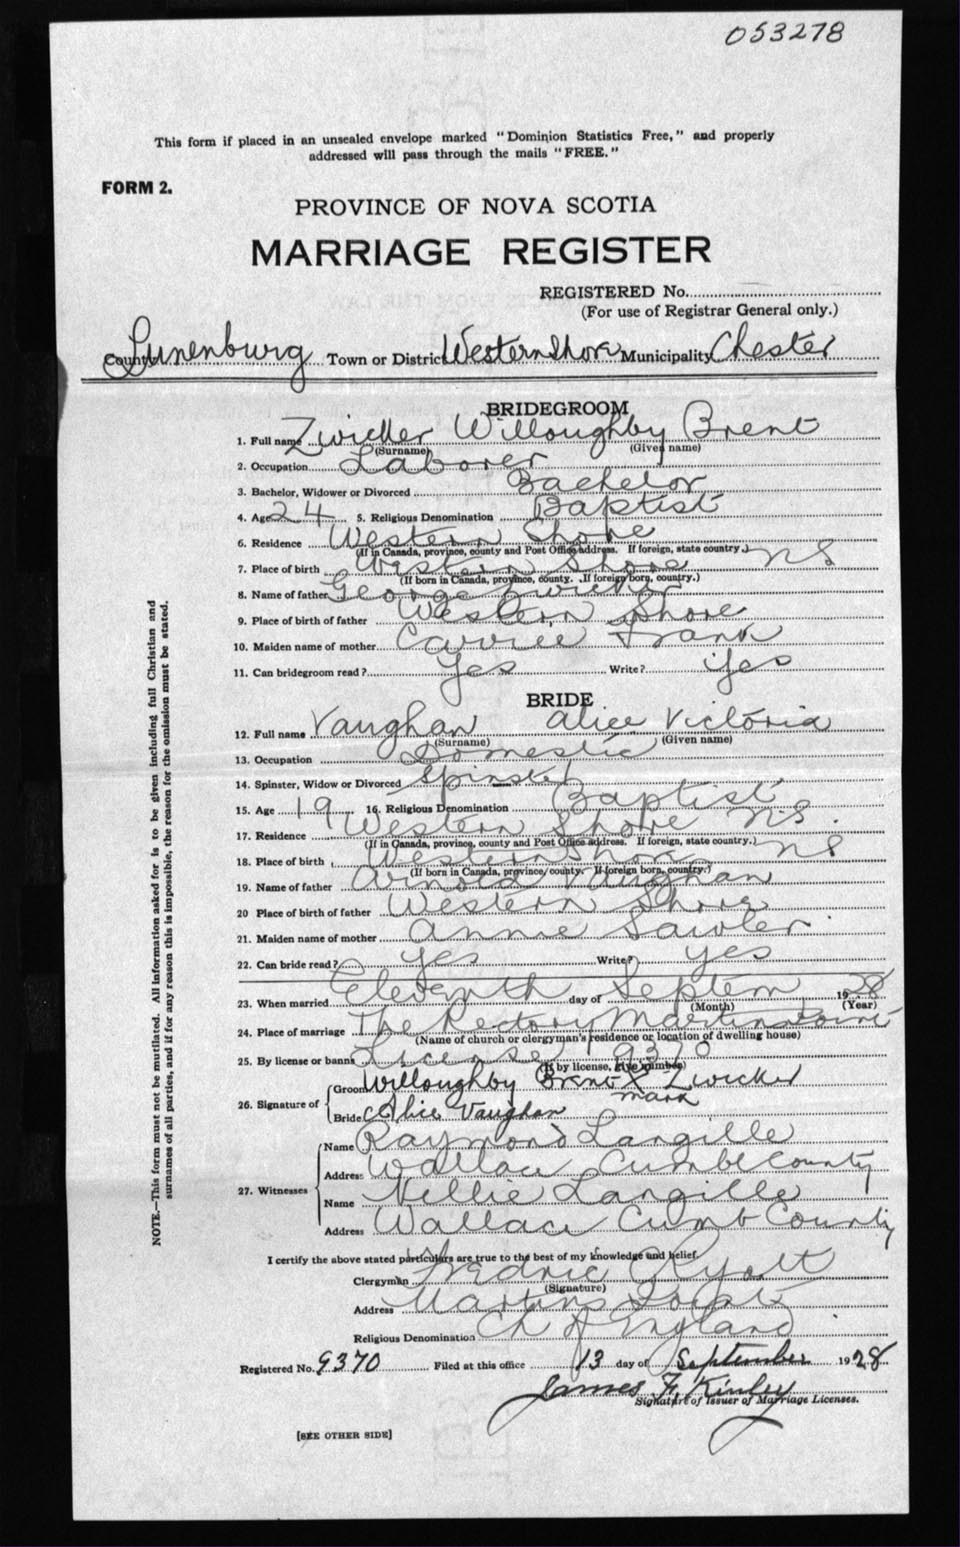 053278
This form if placed in an unsealed envelope marked "Dominion Statistics Free," and properly
addressed will pass through the mails "FREE."
FORM 2.
PROVINCE OF NOVA SCOTIA
MARRIAGE REGISTER
REGISTERED No.
(For use of Registrar General only.)
County Lunenburg Town or District Western Shore Municipality Chester
BRIDEGROOM
1. Full name Zwicker Willoughby Brent
(Surname) (Given name)
2. Occupation Laborer
3. Bachelor, Widower or Divorced Bachelor
4. Age 24 5. Religious Denomination Baptist
6. Residence Western Shore
(If in Canada, province, county and Post Office address. If foreign, state country.)
7. Place of birth Western Shore NS
(If born in Canada, province, county. If foreign born, country.)
8. Name of father George Zwicker
9. Place of birth of father Western Shore
10. Maiden name of mother Carrie Frank
11. Can bridegroom read? Yes Write? Yes
BRIDE
12. Full name Vaughan Alice Victoria
(Surname) (Given name)
13. Occupation Domestic
14. Spinster, Widow or Divorced Spinster
15. Age 19 16. Religious Denomination Baptist
17. Residence Western Shore N.S.
(If in Canada, province, county and Post Office address. If foreign, state country.)
18. Place of birth Western Shore NS
(If born in Canada, province/county. If foreign born, country.)
19. Name of father Arnold Vaughan
20 Place of birth of father Western Shore
21. Maiden name of mother Annie Sawler
22. Can bride read? Yes Write? Yes
23. When married Eleventh day of Septem 1928
(Month) (Year)
24. Place of marriage The Rectory Martins Point
(Name of church or clergyman's residence or location of dwelling house)
25. By license or banns License 9370
(If by license, give number)
26. Signature of Groom Willoughby Brent X Zwicker
mark
Bride Alice Vaughan
27. Witnesses Name Raymond Langille
Address Wallace Cumb County
Name Nellie Langille
Address Wallace Cumb County
I certify the above stated particulars are true to the best of my knowledge and belief.
Clergyman Fredric Ryatt
(Signature)
Address Martins Point
Religious Denomination Ch of England
Registered No. 9370 Filed at this office 13 day of September 1928
James F. Kinley
Signature of Issuer of Marriage Licenses.
[SEE OTHER SIDE]
NOTE.—This form must not be mutilated. All information asked for is to be given including full Christian and
surnames of all parties, and if for any reason this is impossible, the reason for the omission must be stated.